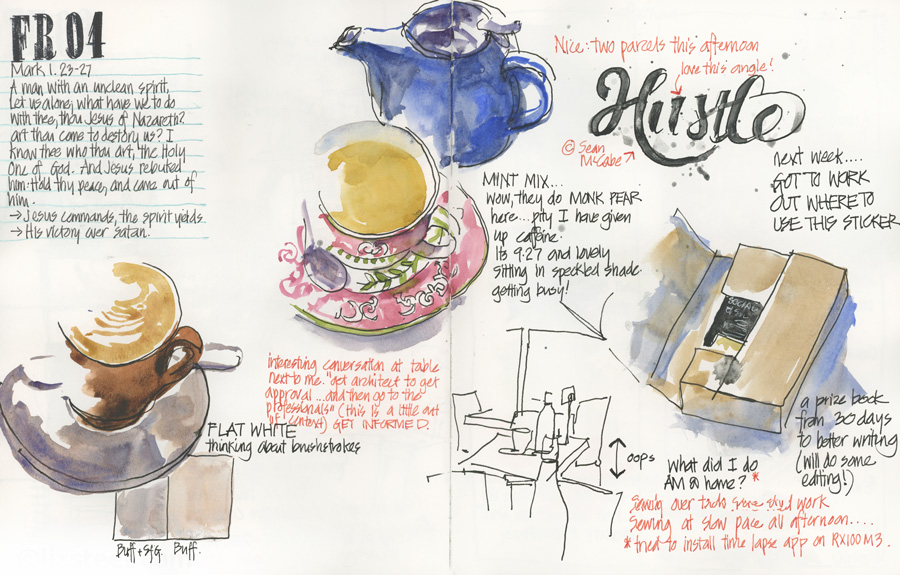 FR 04
Mark 1. 23-27
A man with an unclean spirit,
Let us alone; what have we to do
with thee, thou Jesus of Nazareth?
art thou come to destory us? I
know thee who thou art, the Holy
One of God. And Jesus rebuked
him: Hold thy peace, and come out of
him.
→ Jesus commands, the spirit yields.
→ His victory over satan!
FLAT WHITE
thinking about brushstrokes
Buff + SfG. Buff.
interesting conversation at table
next to me. "get architect to get
approval ... and then go to the
professionals" (this is a little out
of context) GET INFORMED.
MINT MIX...
wow, they do MONK PEAR
here... pity I have given
up caffeine.
Its 9:27 and lovely
sitting in speckled shade.
getting busy!
Nice: two parcels this afternoon
love this angle!
Hustle
© Sean
McCabe
next week....
GOT TO WORK
OUT WHERE TO
USE THIS STICKER
a prize book
from 30 days
to better writing
(will do some
editing!)
oops
What did I do
AM @ home? *
Sewing over todo work
Sewing at slow pace all afternoon....
* tried to install time lapse app on RX100M3.